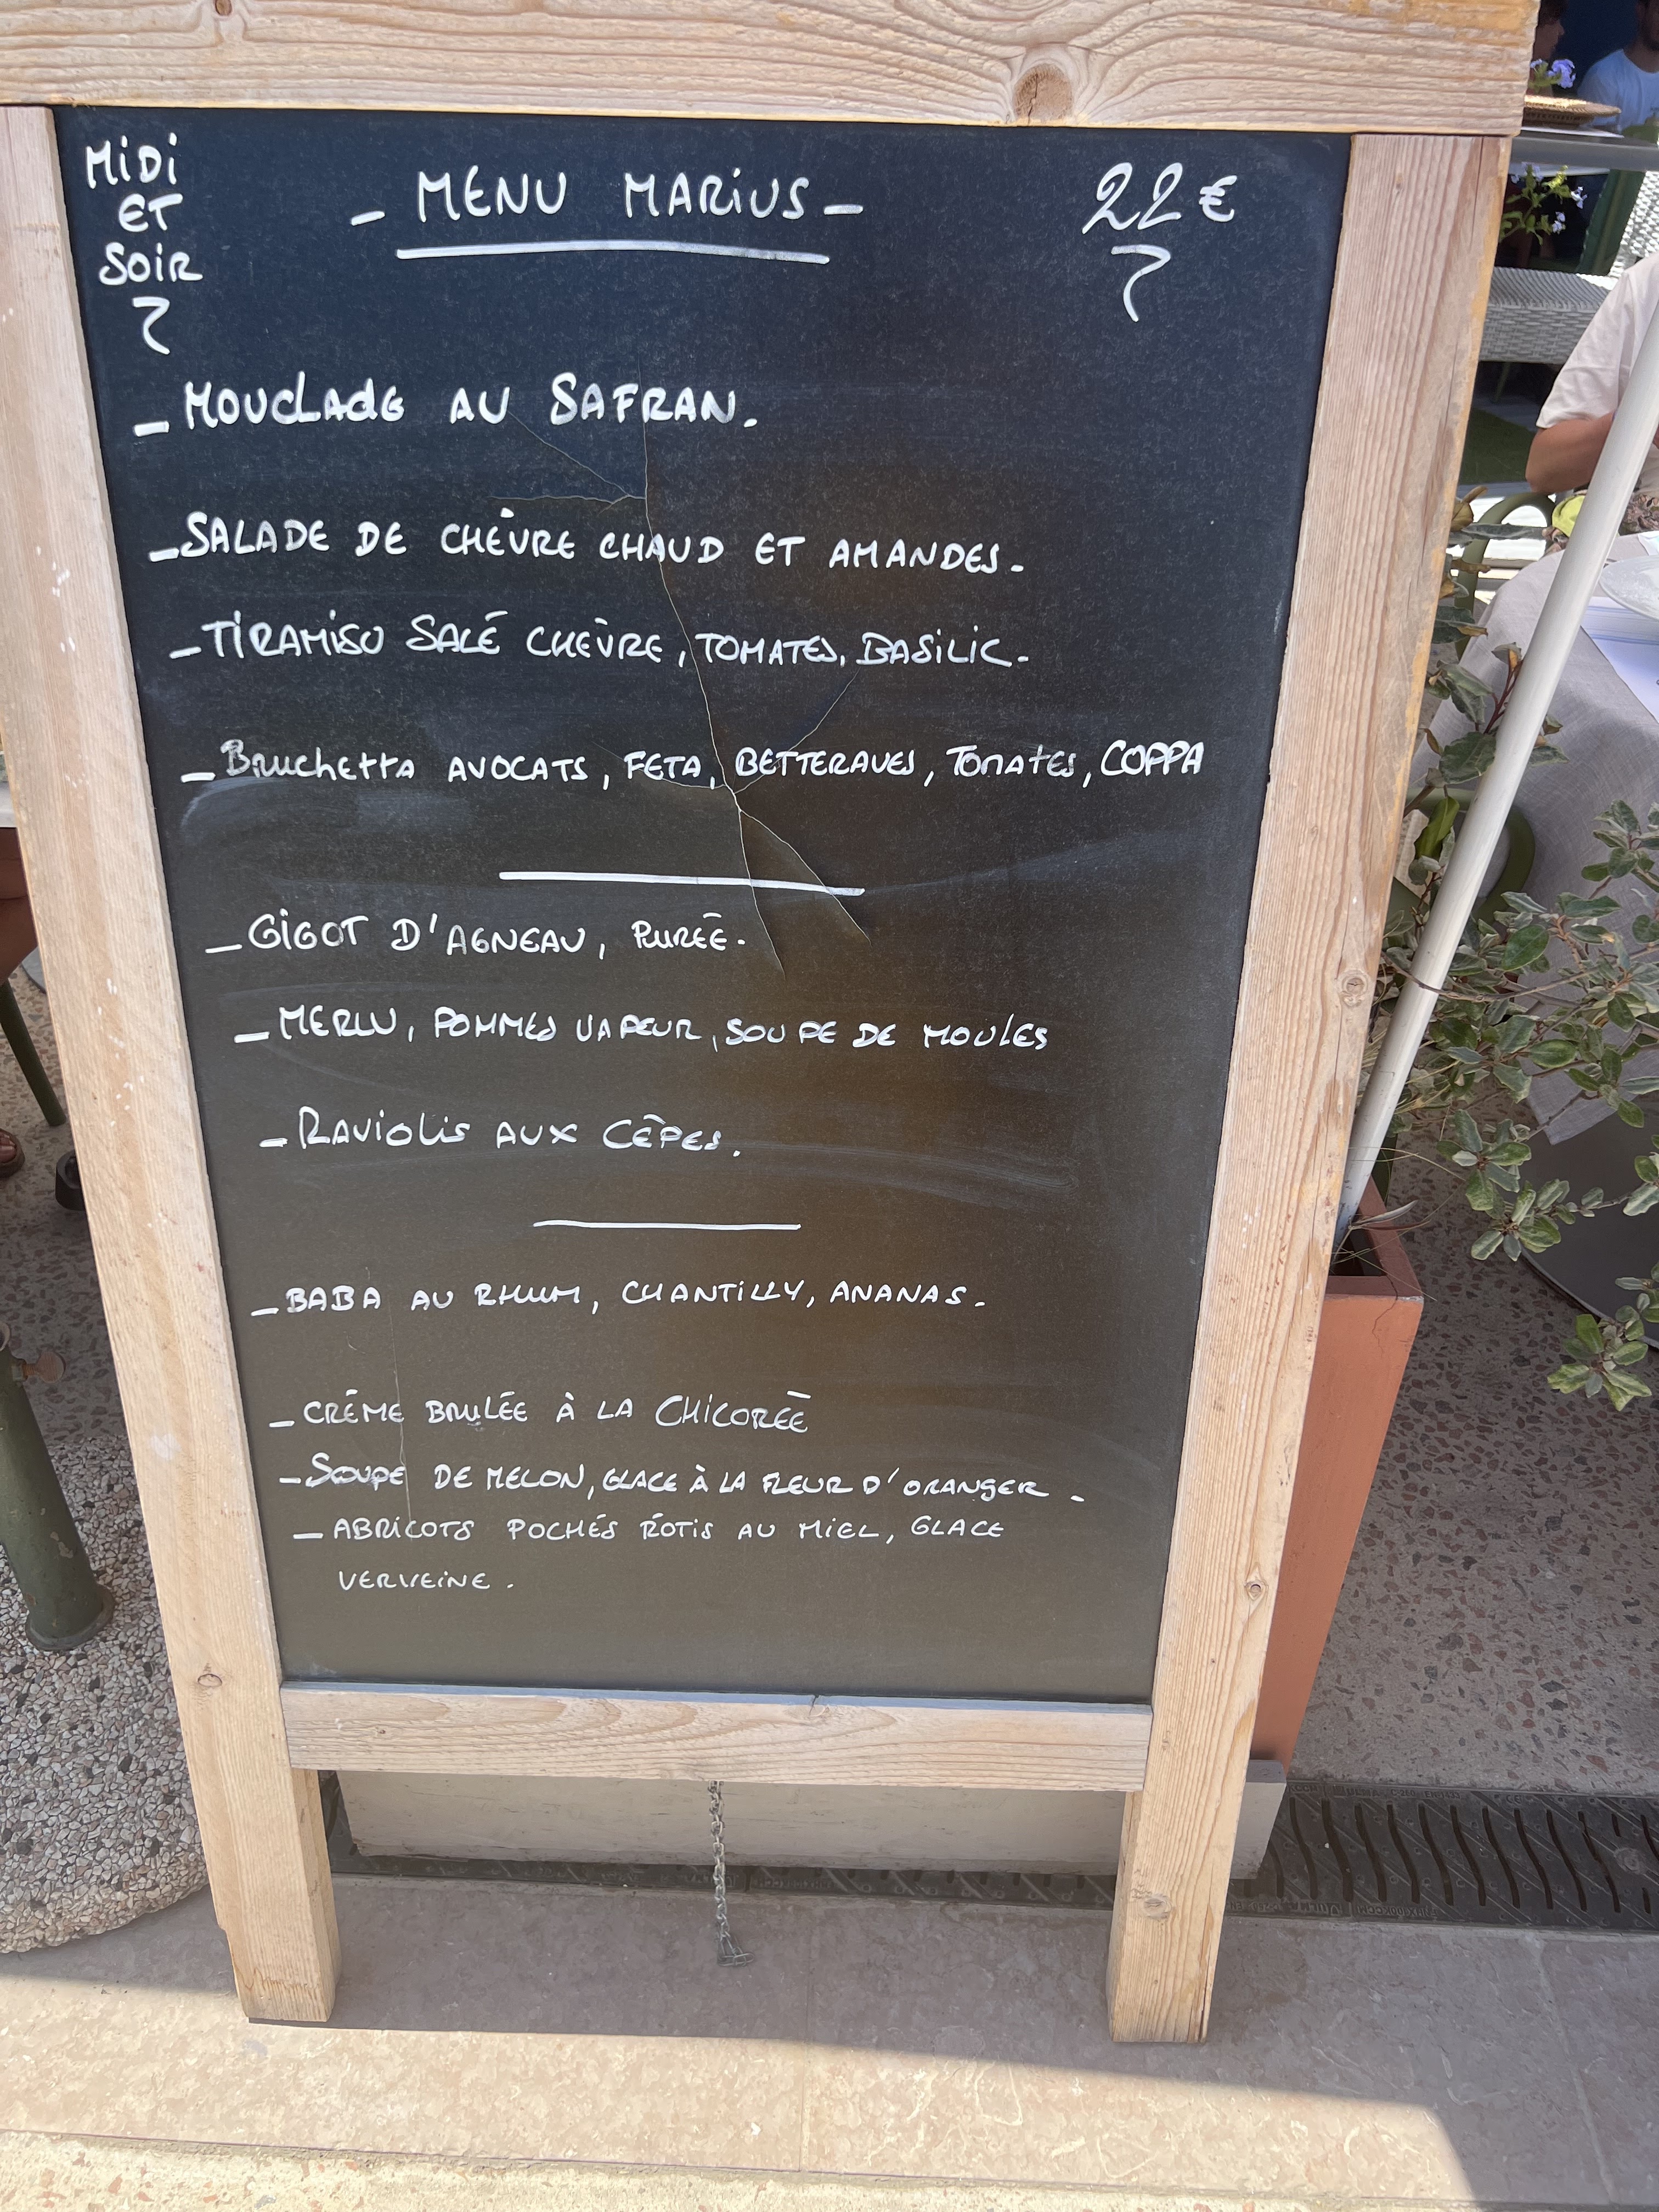 MIDI
ET
SOIR
- MENU MARIUS -
22 €
- MOUCLADE AU SAFRAN.
- SALADE DE CHÈVRE CHAUD ET AMANDES.
- TIRAMISU SALÉ CHÈVRE, TOMATES, BASILIC.
- Bruchetta AVOCATS, FETA, BETTERAVES, TOMATES, COPPA
- GIGOT D'AGNEAU, PURÉE.
- MERLU, POMMES VAPEUR, SOUPE DE MOULES
- RAVIOLIS AUX CÈPES.
- BABA AU RHUM, CHANTILLY, ANANAS.
- CRÈME BRULÉE À LA CHICORÉE
- SOUPE DE MELON, GLACE À LA FLEUR D'ORANGER.
- ABRICOTS POCHÉS RÔTIS AU MIEL, GLACE
VERVEINE.